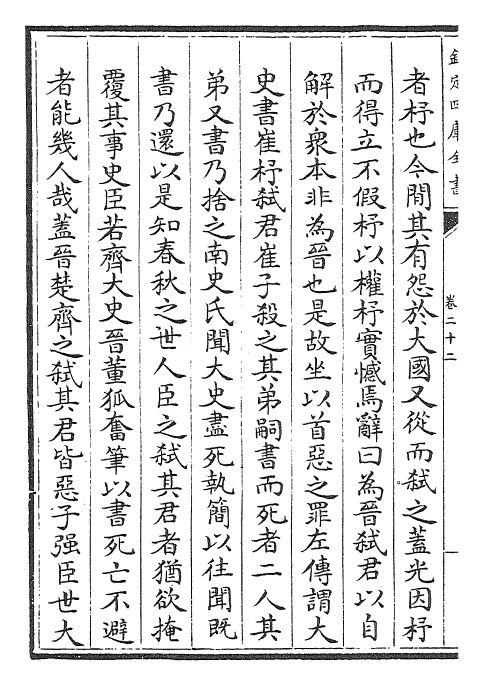 欽定四庫全書
卷二十二
者杼也今閒其有怨於大國又從而弑之蓋光因杼
而得立不假杼以權杼實憾焉辭曰為晉弑君以自
解於衆本非為晉也是故坐以首惡之罪左傳謂大
史書崔杼弑君崔子殺之其弟嗣書而死者二人其
弟又書乃捨之南史氏聞大史盡死執簡以往聞既
書乃還以是知春秋之世人臣之弑其君者猶欲掩
覆其事史臣若齊大史晉董狐奮筆以書死亡不避
者能幾人哉蓋晉楚齊之弑其君皆惡子强臣世大